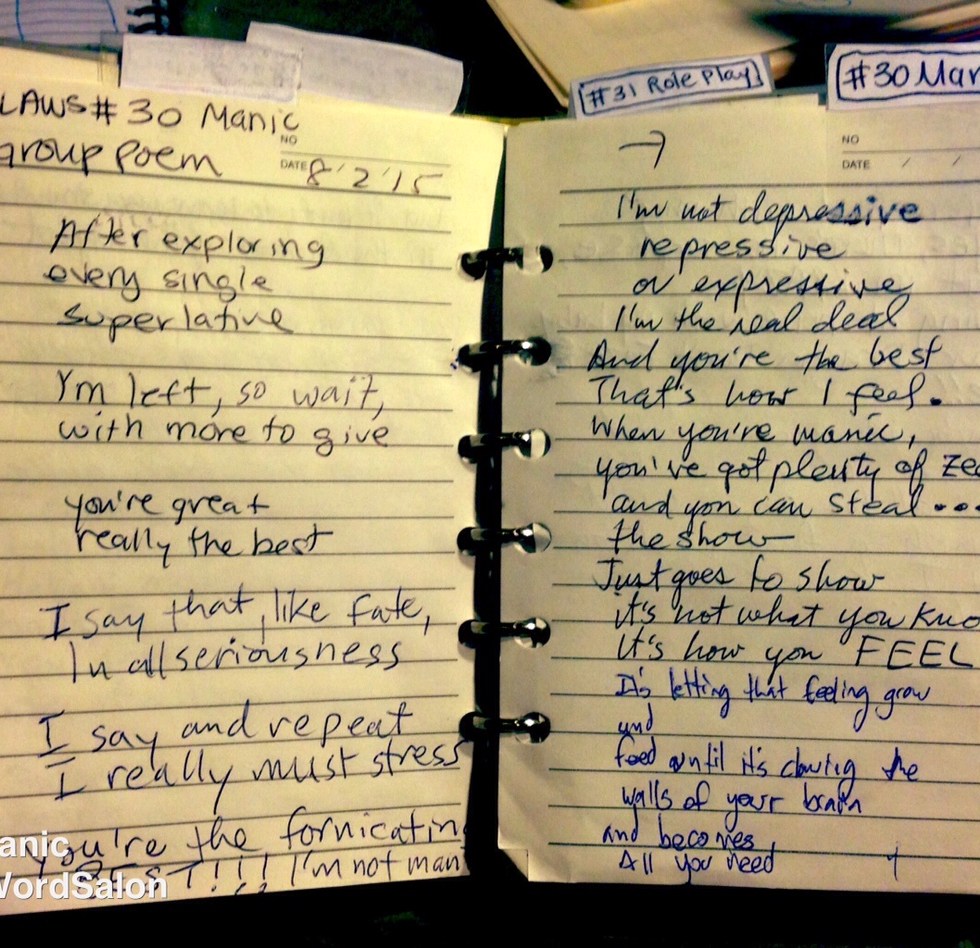 LAWS # 30 Manic
group Poem
NO
DATE 8'2'15
After exploring
every single
superlative
I'm left, so wait,
with more to give
you're great
really the best
I say that, like fate,
In all seriousness
I say and repeat
I really must stress
You're the fornicatin
BEST!!! I'm not man
anic
WordSalon
#31 Role Play
#30 Man
NO
DATE / /
→
I'm not depressive
repressive
or expressive
I'm the real deal
And you're the best
That's how I feel.
When you're manic,
you've got plenty of zea
and you can steal...
the show
Just goes to show
it's not what you kno
It's how you FEEL
It's letting that feeling grow
and
feed until it's clawing the
walls of your brain
and becomes
All you need